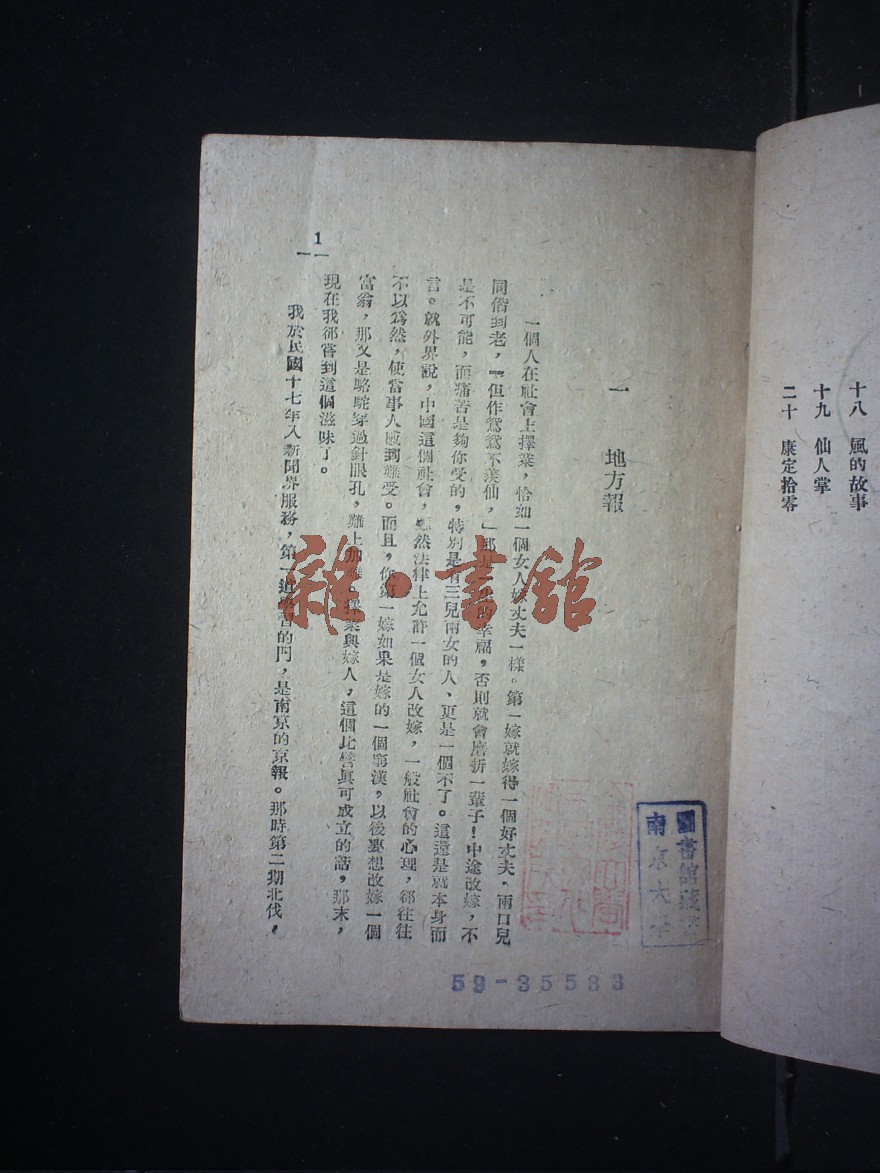 十八　風的故事
十九　仙人掌
二十　康定拾零
一　地方報
一個人在社會上擇業，恰如一個女人嫁丈夫一樣。第一嫁就嫁得一個好丈夫，兩口兒
同偕到老，「但作鴛鴦不羨仙，」那是一生的幸福，否則就會磨折一輩子！中途改嫁，不
是不可能，而痛苦是夠你受的，特別是有三兒兩女的人，更是一個不了。這還是就本身而
言。就外界說，中國這個社會，雖然法律上允許一個女人改嫁，一般社會的心理，都往往
不以爲然，使當事人感到難受。而且，你第一嫁如果是嫁的一個窮漢，以後要想改嫁一個
富翁，那又是駱駝穿過針眼孔，難上加難。擇業與嫁人，這個比譬眞可成立的話，那末，
現在我卻嘗到這個滋味了。
我於民國十七年入新聞界服務，第一道學習的門，是南京的京報。那時第二期北伐，
1
雜·書館
南京大學
圖書館藏
59-35533